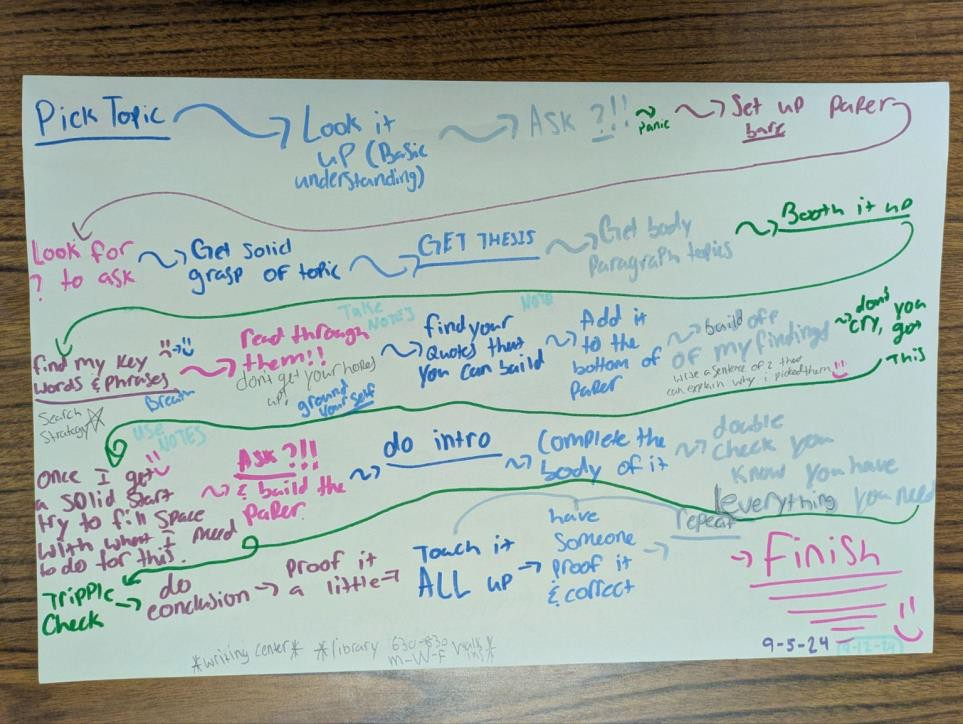 Pick Topic
Look it
up (Basic
understanding)
Ask ?!!
panic
Set up paper
bare
Look for
? to ask
Get solid
grasp of topic
GET THESIS
Get body
Paragraph topics
Booth it up
find my key
words & phrases
Search
Strategy
Breath
read through
them!!
dont get your hopes
up!
ground
yourself
Take
NOTES
find your
quotes that
you can baild
NOTE
Add it
to the
bottom of
Paper
baild off
of my findings
write a sentence of 2 that
can explain why i picked them
dont
cry, you
got
This
USE
NOTES
once I get
a solid start
try to fill space
with what I need
to do for this.
Ask ?!!
& baild the
Paper
do intro
Complete the
body of it
double
check you
know you have
everything you need
Tripple
Check
do
conclusion
Proof it
a little
Touch it
ALL up
have
someone
proof it
& correct
repeat
Finish
*writing center* *library 630-830
m-W-F Walk
ins*
9-5-24 9-12-24